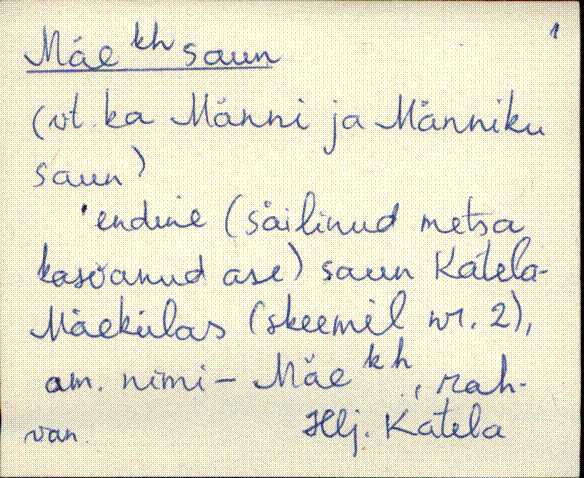 1
Mäe kh saun
(vt. ka Männi ja Männiku
saun)
'endine (säilinud metsa
kasvanud ase) saun Katela-
Mäekülas (skeemil nr. 2),
am. nimi - Mäe kh, rah-
van. Hlj. Katela